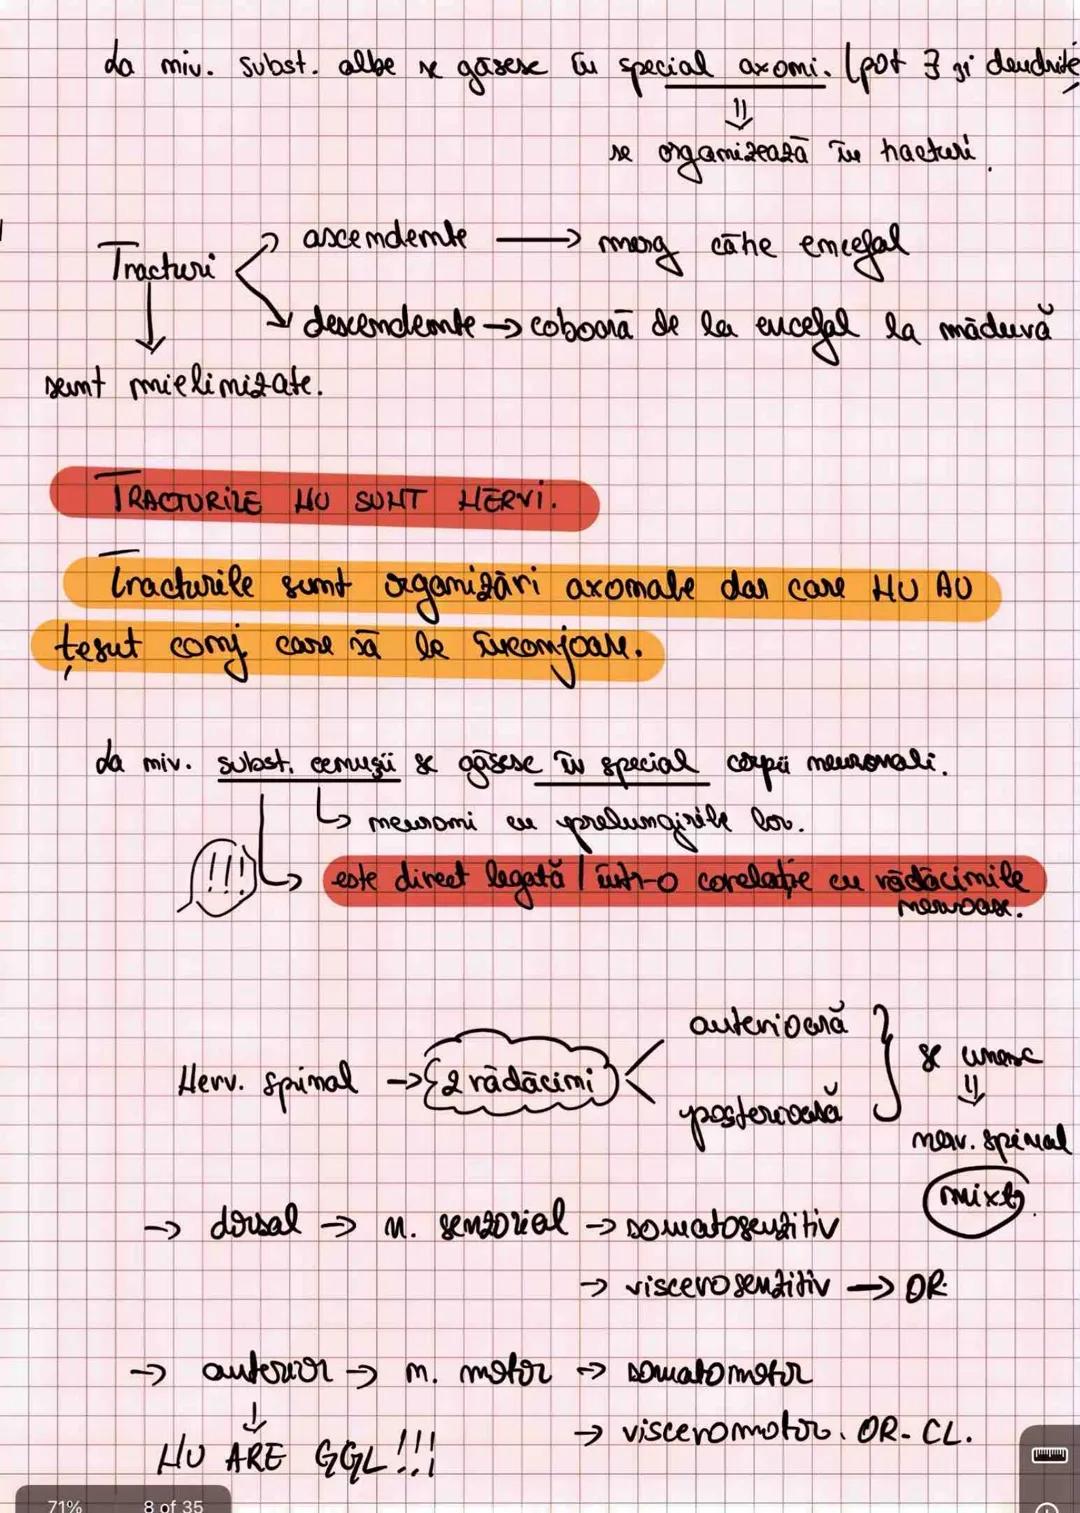 La niv. subst. albe se găsesc în special axoni. (pot ∃ și dendrite
⇓
se organizează în tracturi.
Tracturi
ascendente → merg către encefal
descendente → coboară de la encefal la măduvă
sunt mielinizate.
TRACTURILE NU SUNT NERVI.
Tracturile sunt organizări axonale dar care NU AU
țesut conj care să le înconjoare.
La niv. subst. cenușii se găsesc în special corpii neuronali.
↳ neuroni cu prelungirile lor.
!!! → este direct legată / într-o corelație cu rădăcinile
nervoase.
Nerv. spinal → 2 rădăcini
anterioară
posterioară
se unesc
⇓
nerv. spinal
mixt
→ dorsal → n. senzorial → somatosenzitiv
→ viscerosenzitiv → OR.
→ anterior → n. motor → somatomotor
→ visceromotor. OR- CL.
↓
NU ARE GGL!!!
71% 8 of 35